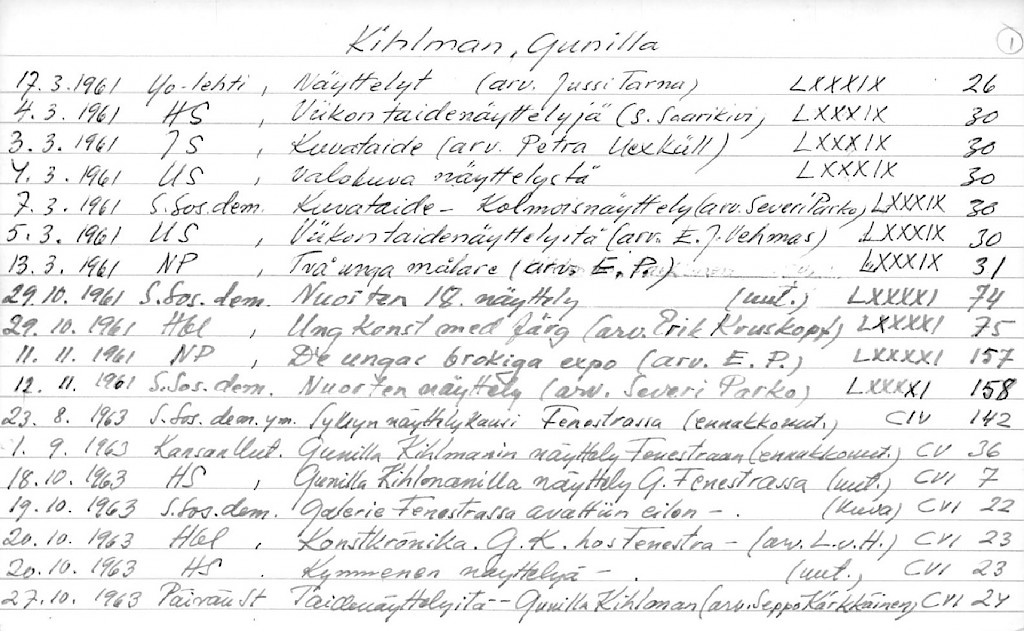 1
Kihlman, Gunilla
17.3.1961 Yo-lehti, Näyttelyt (arv. Jussi Tarna) LXXXIX 26
4.3.1961 HS, Viikon taidenäyttelyjä (S. Saarikivi) LXXXIX 30
3.3.1961 IS, Kuvataide (arv. Petra Uexküll) LXXXIX 30
4.3.1961 US, valokuva näyttelystä LXXXIX 30
7.3.1961 S.Sos.dem. Kuvataide - Kolmoisnäyttely (arv. Severi Parko) LXXXIX 30
5.3.1961 US, Viikon taidenäyttelyitä (arv. E.J. Vehmas) LXXXIX 30
13.3.1961 NP, Två unga målare (arv. E.P.) LXXXIX 31
29.10.1961 S.Sos.dem. Nuorten 18. näyttely (uut.) LXXXXI 74
29.10.1961 Hbl, Ung konst med färg (arv. Erik Kruskopf) LXXXXI 75
11.11.1961 NP, De ungas brokiga expo (arv. E.P.) LXXXXI 157
12.11.1961 S.Sos.dem. Nuorten näyttely (arv. Severi Parko) LXXXXI 158
23.8.1963 S.Sos.dem.ym. Syksyn näyttelykausi Fenestrassa (ennakkouut.) CIV 142
1.9.1963 Kansan Uut. Gunilla Kihlmanin näyttely Fenestraan (ennakkouut.) CV 36
18.10.1963 HS, Gunilla Kihlmanilla näyttely G. Fenestrassa (uut.) CVI 7
19.10.1963 S.Sos.dem. Galerie Fenestrassa avattiin eilen -. (kuva) CVI 22
20.10.1963 Hbl, Konstkrönika. G.K. hos Fenestra - (arv. L.v.H.) CVI 23
20.10.1963 HS. Kymmenen näyttelyä -. (uut.) CVI 23
27.10.1963 Päivän St Taidenäyttelyitä - Gunilla Kihlman (arv. Seppo Kärkkäinen) CVI 24